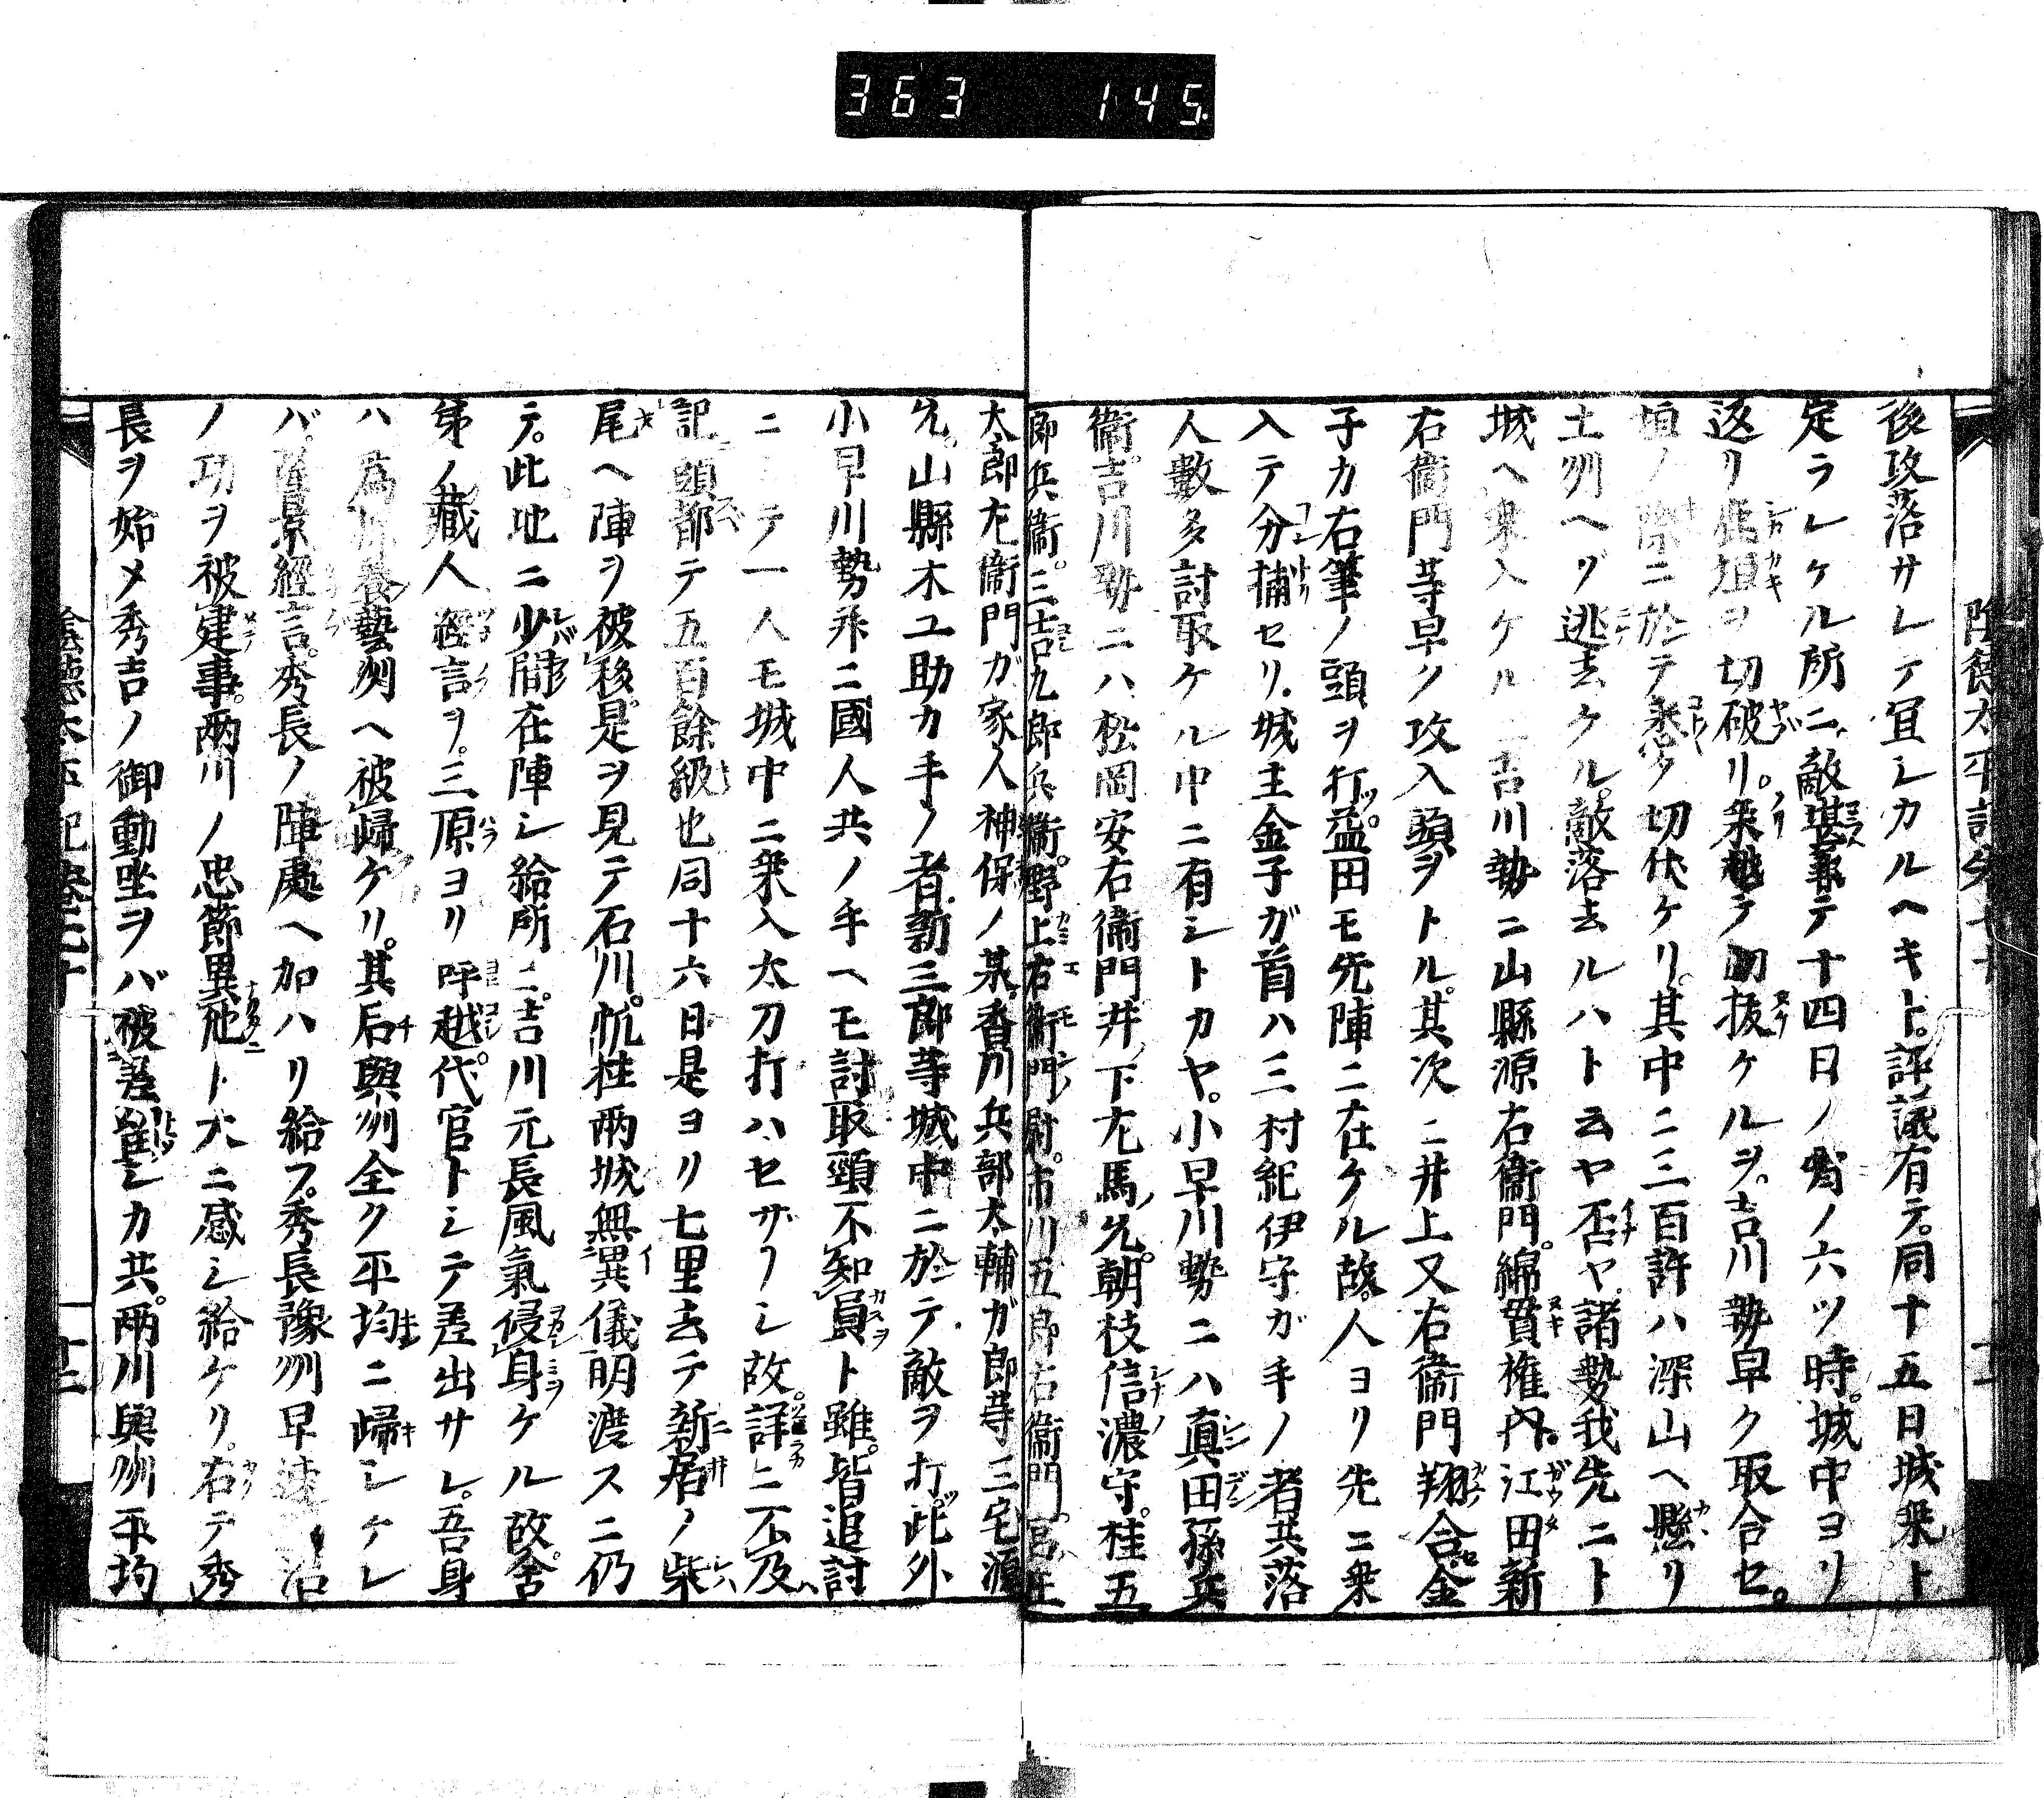 363 145
後攻落サレテ宜シカルヘキト評議有テ。同十五日城乗ト
定ラレケル所ニ、敵堪兼テ十四日ノ宵ノ六ツ時。城中ヨリ
返リ鹿垣ヲ切破リ。乗越テ切抜ケルヲ。吉川勢早ク取合セ。
垣ノ際ニ於テ悉ク切伏ケリ。其中ニ三百許ハ深山ヘ懸リ
土州ヘゾ逃去ケル。敵落去ルハト云ヤ否ヤ。諸勢我先ニト
城ヘ乗入ケル 吉川勢ニ山縣源右衛門。綿貫権内。江田新
右衛門等早ク攻入頭ヲトル。其次ニ井上又右衛門翔合金
子カ右筆ノ頭ヲ打。益田モ先陣ニ在ケル故。人ヨリ先ニ乗
入テ分捕セリ。城主金子ガ首ハ三村紀伊守ガ手ノ者共落
人數多討取ケル中ニ有シトカヤ。小早川勢ニハ真田孫兵
衛。吉川勢ニハ松岡安右衛門井下左馬允。朝枝信濃守。桂五
郎兵衛。三吉九郎兵衛。野上右衛門尉。市川五郎右衛門。宮庄
太郎左衛門ガ家人神保ノ某。香川兵部太輔ガ郎等三宅源
允。山縣木工助カ手ノ者。新三郎等城中ニ於テ。敵ヲ打。此外
小早川勢并ニ國人共ノ手ヘモ討取頸不知員ト雖。皆追討
ニシテ一人モ城中ニ乗入太刀打ハセザリシ故。詳ニ不及
記頭都テ五百餘級也同十六日是ヨリ七里去テ新居ノ柴
尾ヘ陣ヲ被移。是ヲ見テ石川。 両城無異儀明渡スニ仍
テ。此地ニ少間在陣シ給所ニ。吉川元長風氣侵身ケル故。舎
弟ノ蔵人 經言ヲ。三原ヨリ呼越。代官トシテ差出サレ。吾身
ハ為保養藝州ヘ被歸ケリ。其后與州全ク平均ニ歸シケレ
バ。隆景經言。秀長ノ陣處ヘ加ハリ給フ。秀長豫州早速 治
ノ功ヲ被建事。両川ノ忠節異他ト大ニ感シ給ケリ。右テ秀
長ヲ始メ秀吉ノ御動坐ヲバ被差 シカ共。両川與州平均